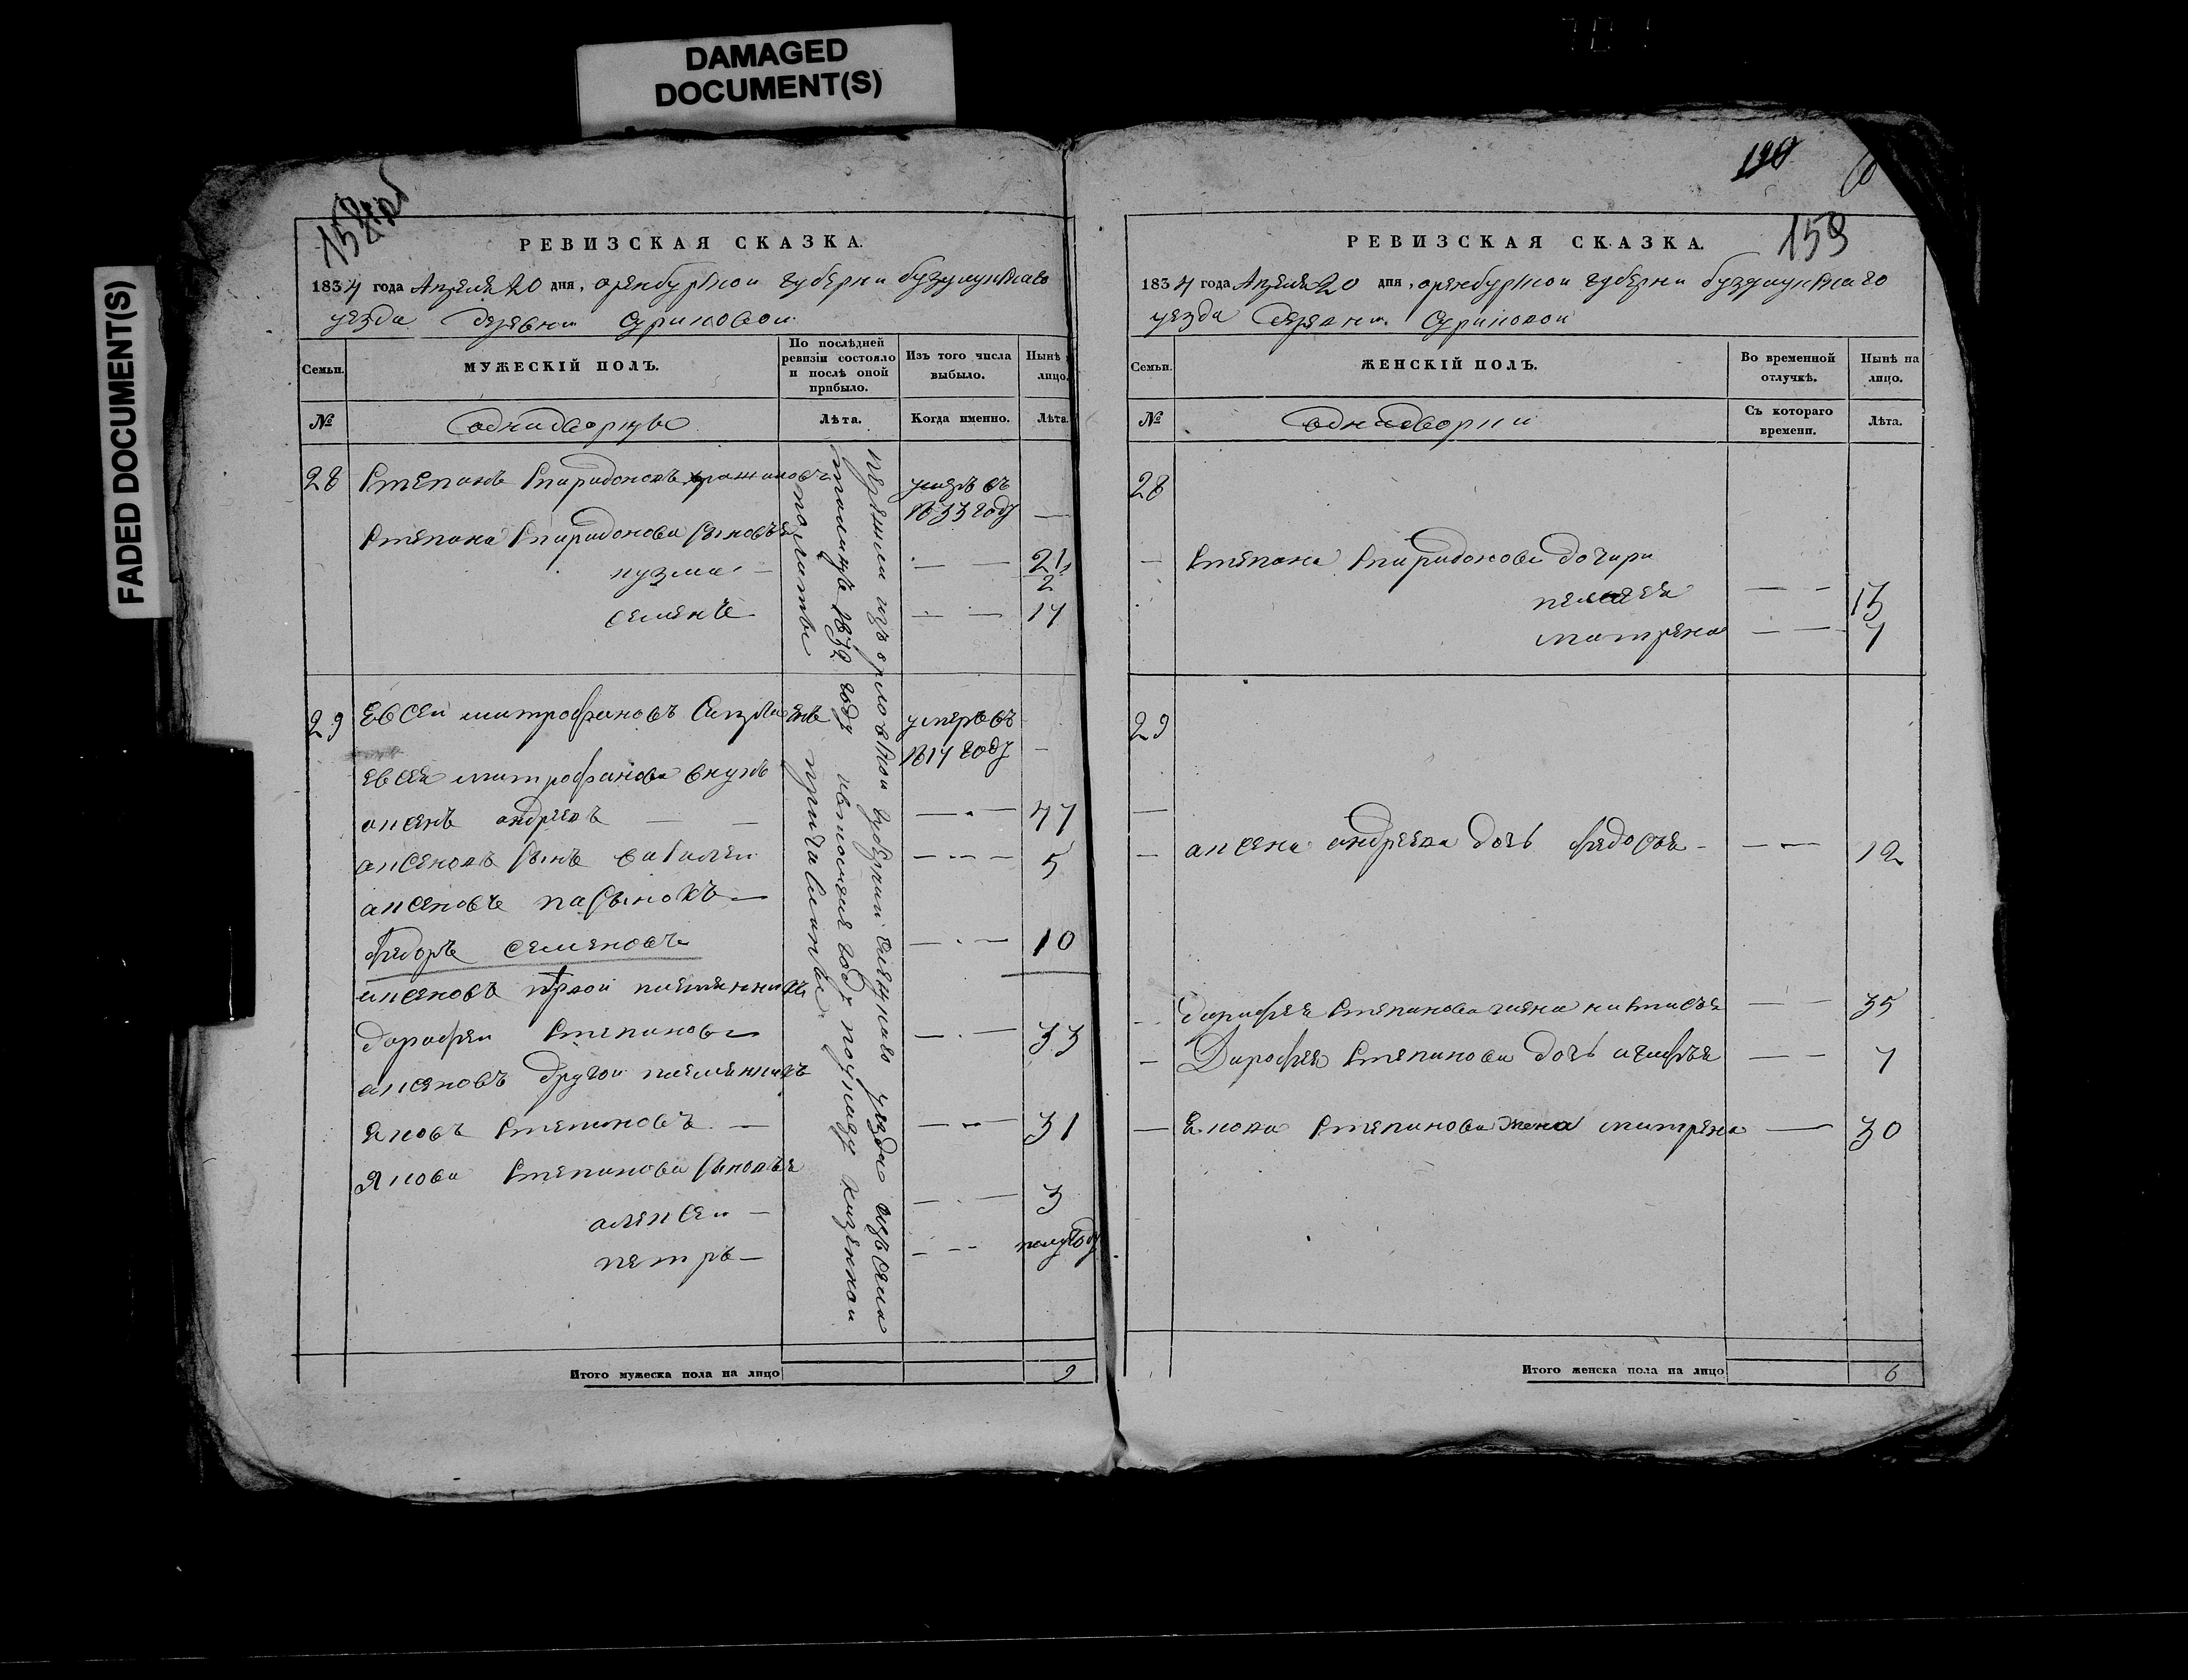 DAMAGED
DOCUMENT(S)
FADED DOCUMENT(S)
РЕВИЗСКАЯ СКАЗКА.
1834 года Апреля 20 дня, оренбурской губерни бузулукскаво
уезда деревни Суриковой
Семьи.
МУЖЕСКІЙ ПОЛЪ.
По послѣдней ревизіи состояло и послѣ оной прибыло.
Изъ того числа выбыло.
Нынѣ лицо.
№
однадворцы
Лѣта.
Когда именно.
Лѣта.
28 Степанъ Спиридоновъ умеръ въ
1833 году —
Степана Спиридонова сыновья
кузма — — — 21 1/2
семенъ — — 14
29 Евсей митрофановъ умеръ въ
1814 году —
евсея митрофанова внукъ
аксенъ андреевъ — — — 47
аксеновъ сынъ савалей — 5
аксеновъ пасынокъ —
федоръ семеновъ — 10
аксеновъ первой племянникъ
дарофей степановъ — 33
аксеновъ другой племянникъ
яковъ степановъ — — 31
Якова степанова сыновья
алексей — — 3
петръ — — полугоду
перешли изъ орловской губернии елецкаво уезда изъ села
талицы 1832 году ивтомже году поуказу казенной
полаты причислены
Итого мужеска пола на лицо 9
190
159
РЕВИЗСКАЯ СКАЗКА.
1834 года Апреля 20 дня, оренбурской губерни бузулукскаго
уезда деревни Суриковой
Семьи.
ЖЕНСКІЙ ПОЛЪ.
Во временной отлучкѣ.
Нынѣ на лицо.
№
однадворки
Съ котораго времени.
Лѣта.
28
— Степана Спиридонова дочири
пелагея — — 15
матрена — — 7
29
—
— аксена андреева дочь федосья — — 12
— дарофея степанова жена — — 35
— Дарофея степанова дочь — — 7
— якова степанова жена матрена — 30
Итого женска пола на лицо 6